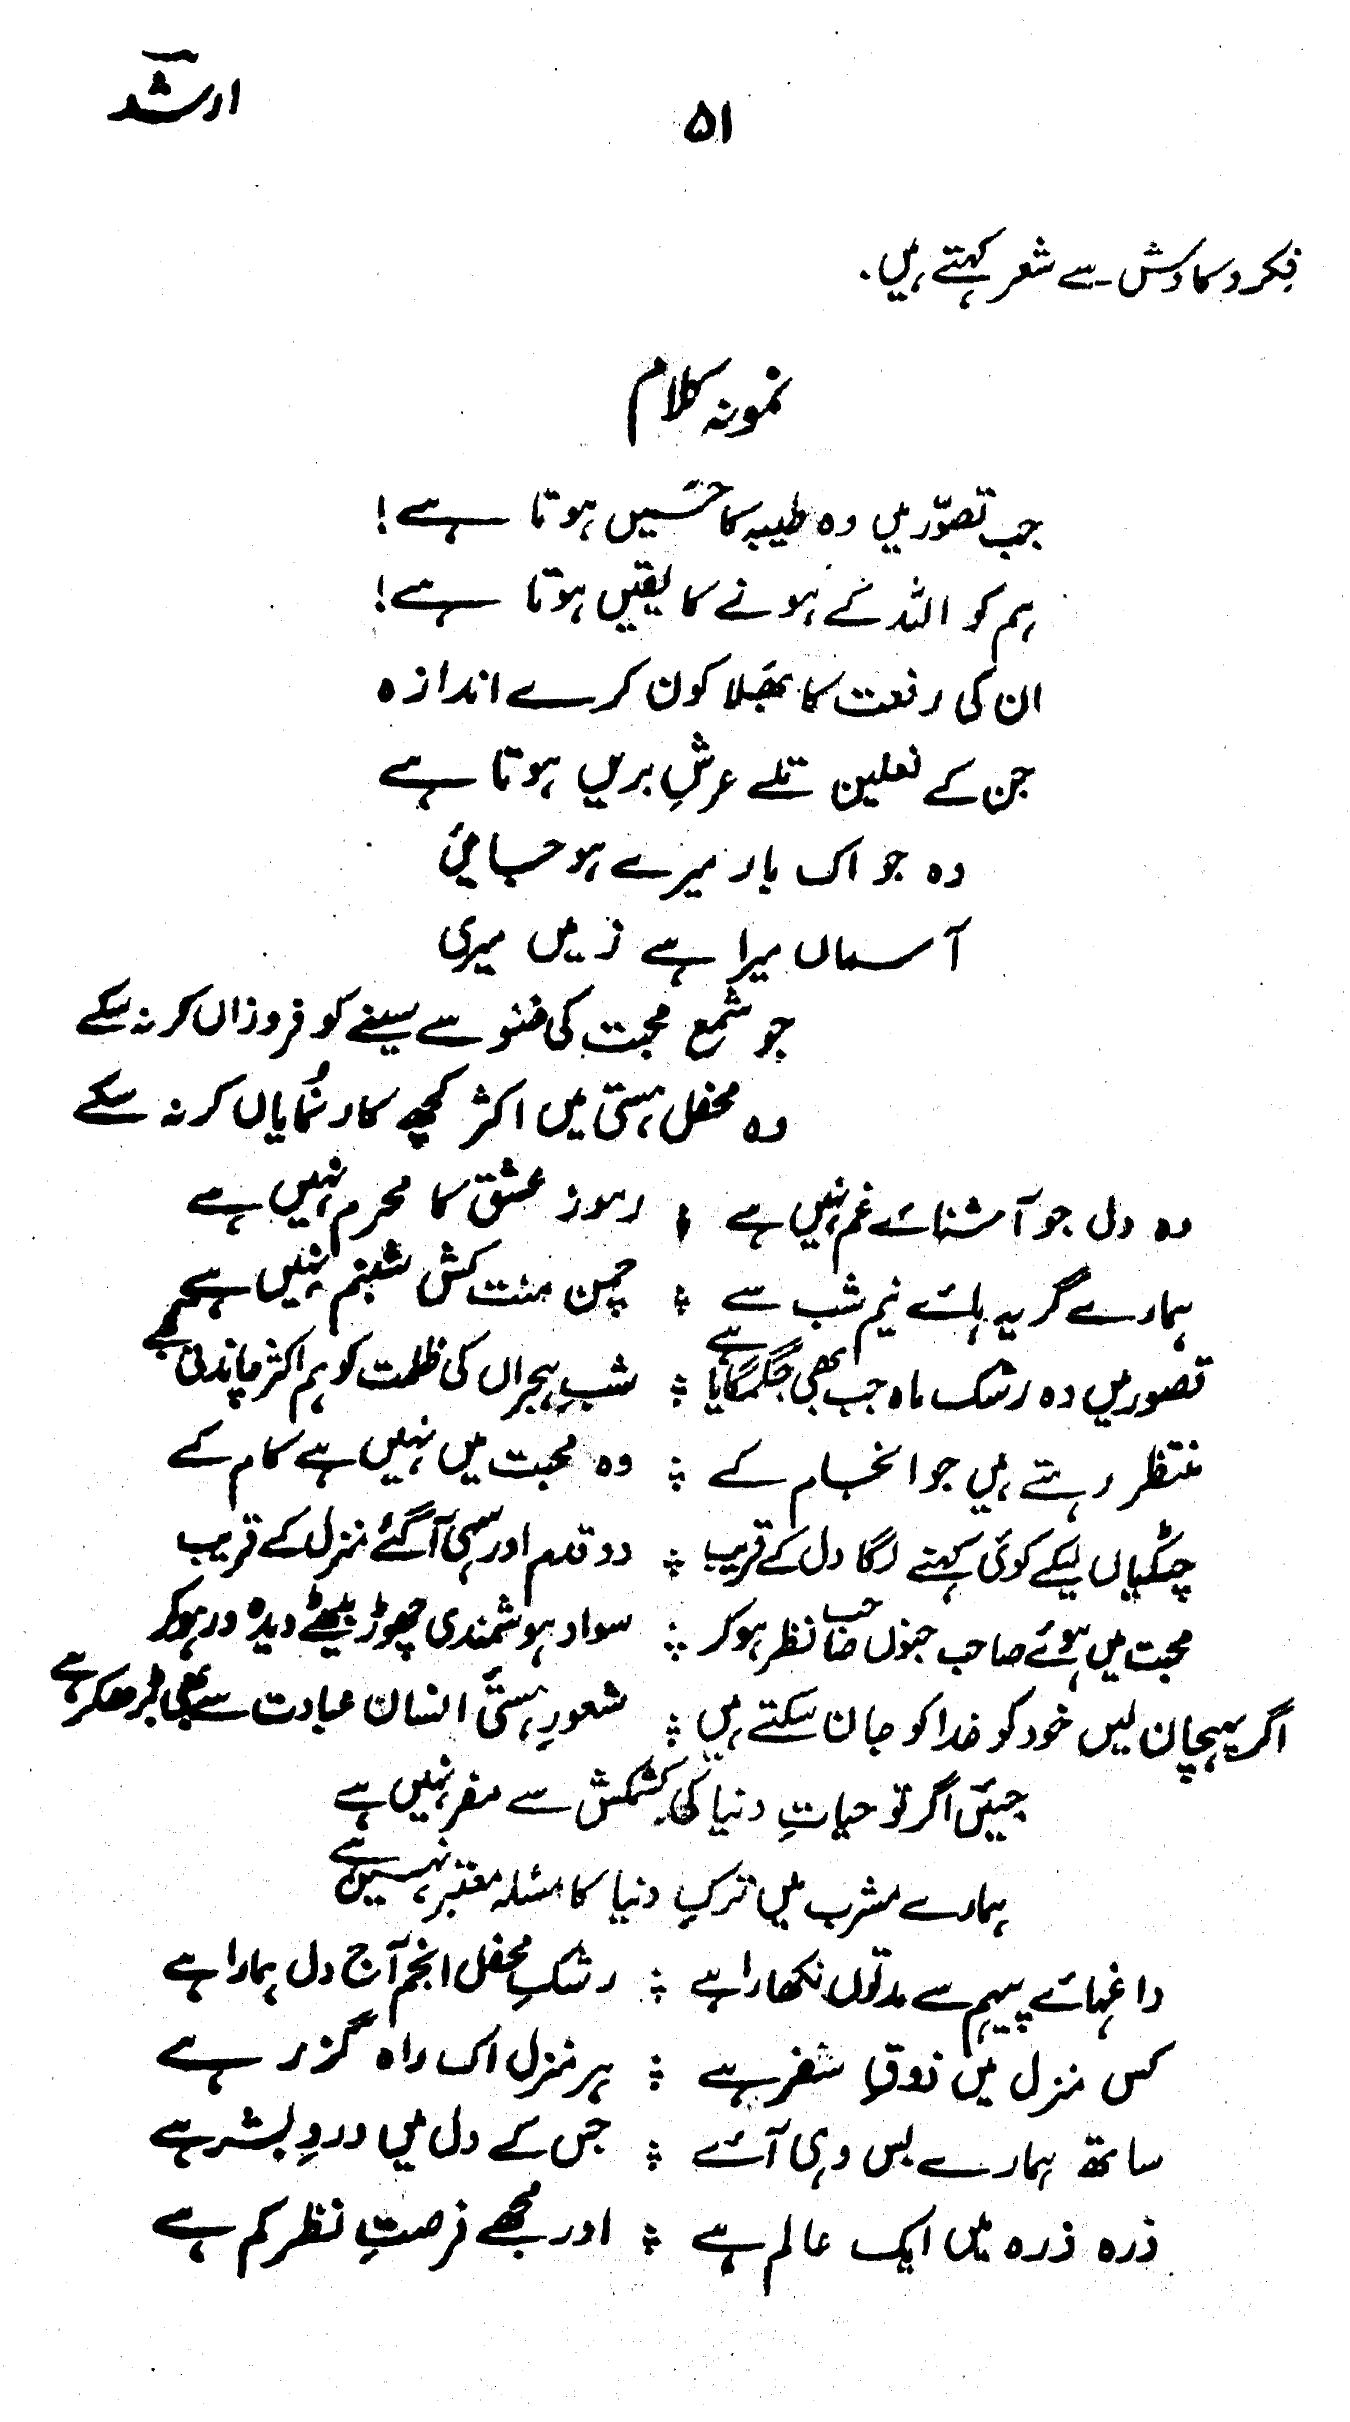 ارشد
۵۱
فکر و کاوش سے شعر کہتے ہیں.
نمونہ کلام
جب تصوّر میں وہ طیبہ کا حسَیں ہوتا ہے!
ہم کو اللہ کے ہونے کا یقیں ہوتا ہے!
ان کی رفعت کا بھَلا کون کرے اندازہ
جن کے نعلین تلے عرشِ بریں ہوتا ہے
وہ جو اک بار میرے ہو جائیں
آسماں میرا ہے زمیں میری
جو شمع محبت کی ضو سے سینے کو فروزاں کر نہ سکے
وہ محفل ہستی میں اکثر کچھ کار نُمایاں کر نہ سکے
وہ دل جو آشنائے غم نہیں ہے ؛ رموز عشق کا محرم نہیں ہے
ہمارے گریہ ہائے نیم شب سے ؛ چمن منت کش شبنم نہیں ہے
تصور میں وہ رشک ماہ جب بھی جگمگایا ہے ؛ شبِ ہجراں کی ظلمت کو ہم اکثر چاندنی سمجھے
منتظر رہتے ہیں جو انجام کے ؛ وہ محبت میں نہیں ہے کام کے
چٹکیاں لیکے کوئی کہنے لگا دل کے قریب ؛ دو قدم اور سہی آگئے منزل کے قریب
محبت میں ہوئے صاحب جنوں صاحب نظر ہوکر ؛ سواد ہوشمندی چھوڑ بیٹھے دیدہ ور ہوکر
اگر پہچان لیں خود کو خدا کو جان سکتے ہیں ؛ شعورِ ہستیٔ انسان عبادت سے بھی بڑھکر ہے
جیئں اگر تو حیاتِ دنیا کی کشمکش سے مفر نہیں ہے
ہمارے مشرب میں ترکِ دنیا کا مسئلہ معتبر نہیں ہے
داغہائے پیہم سے مدتوں نکھارا ہے ؛ رشکِ محفل انجم آج دل ہمارا ہے
کس منزل میں ذوقِ سفر ہے ؛ ہر منزل اک راہ گزر ہے
ساتھ ہمارے بس وہی آئے ؛ جس کے دل میں دردِ بشر ہے
ذرہ ذرہ میں ایک عالم ہے ؛ اور مجھے فرصتِ نظر کم ہے